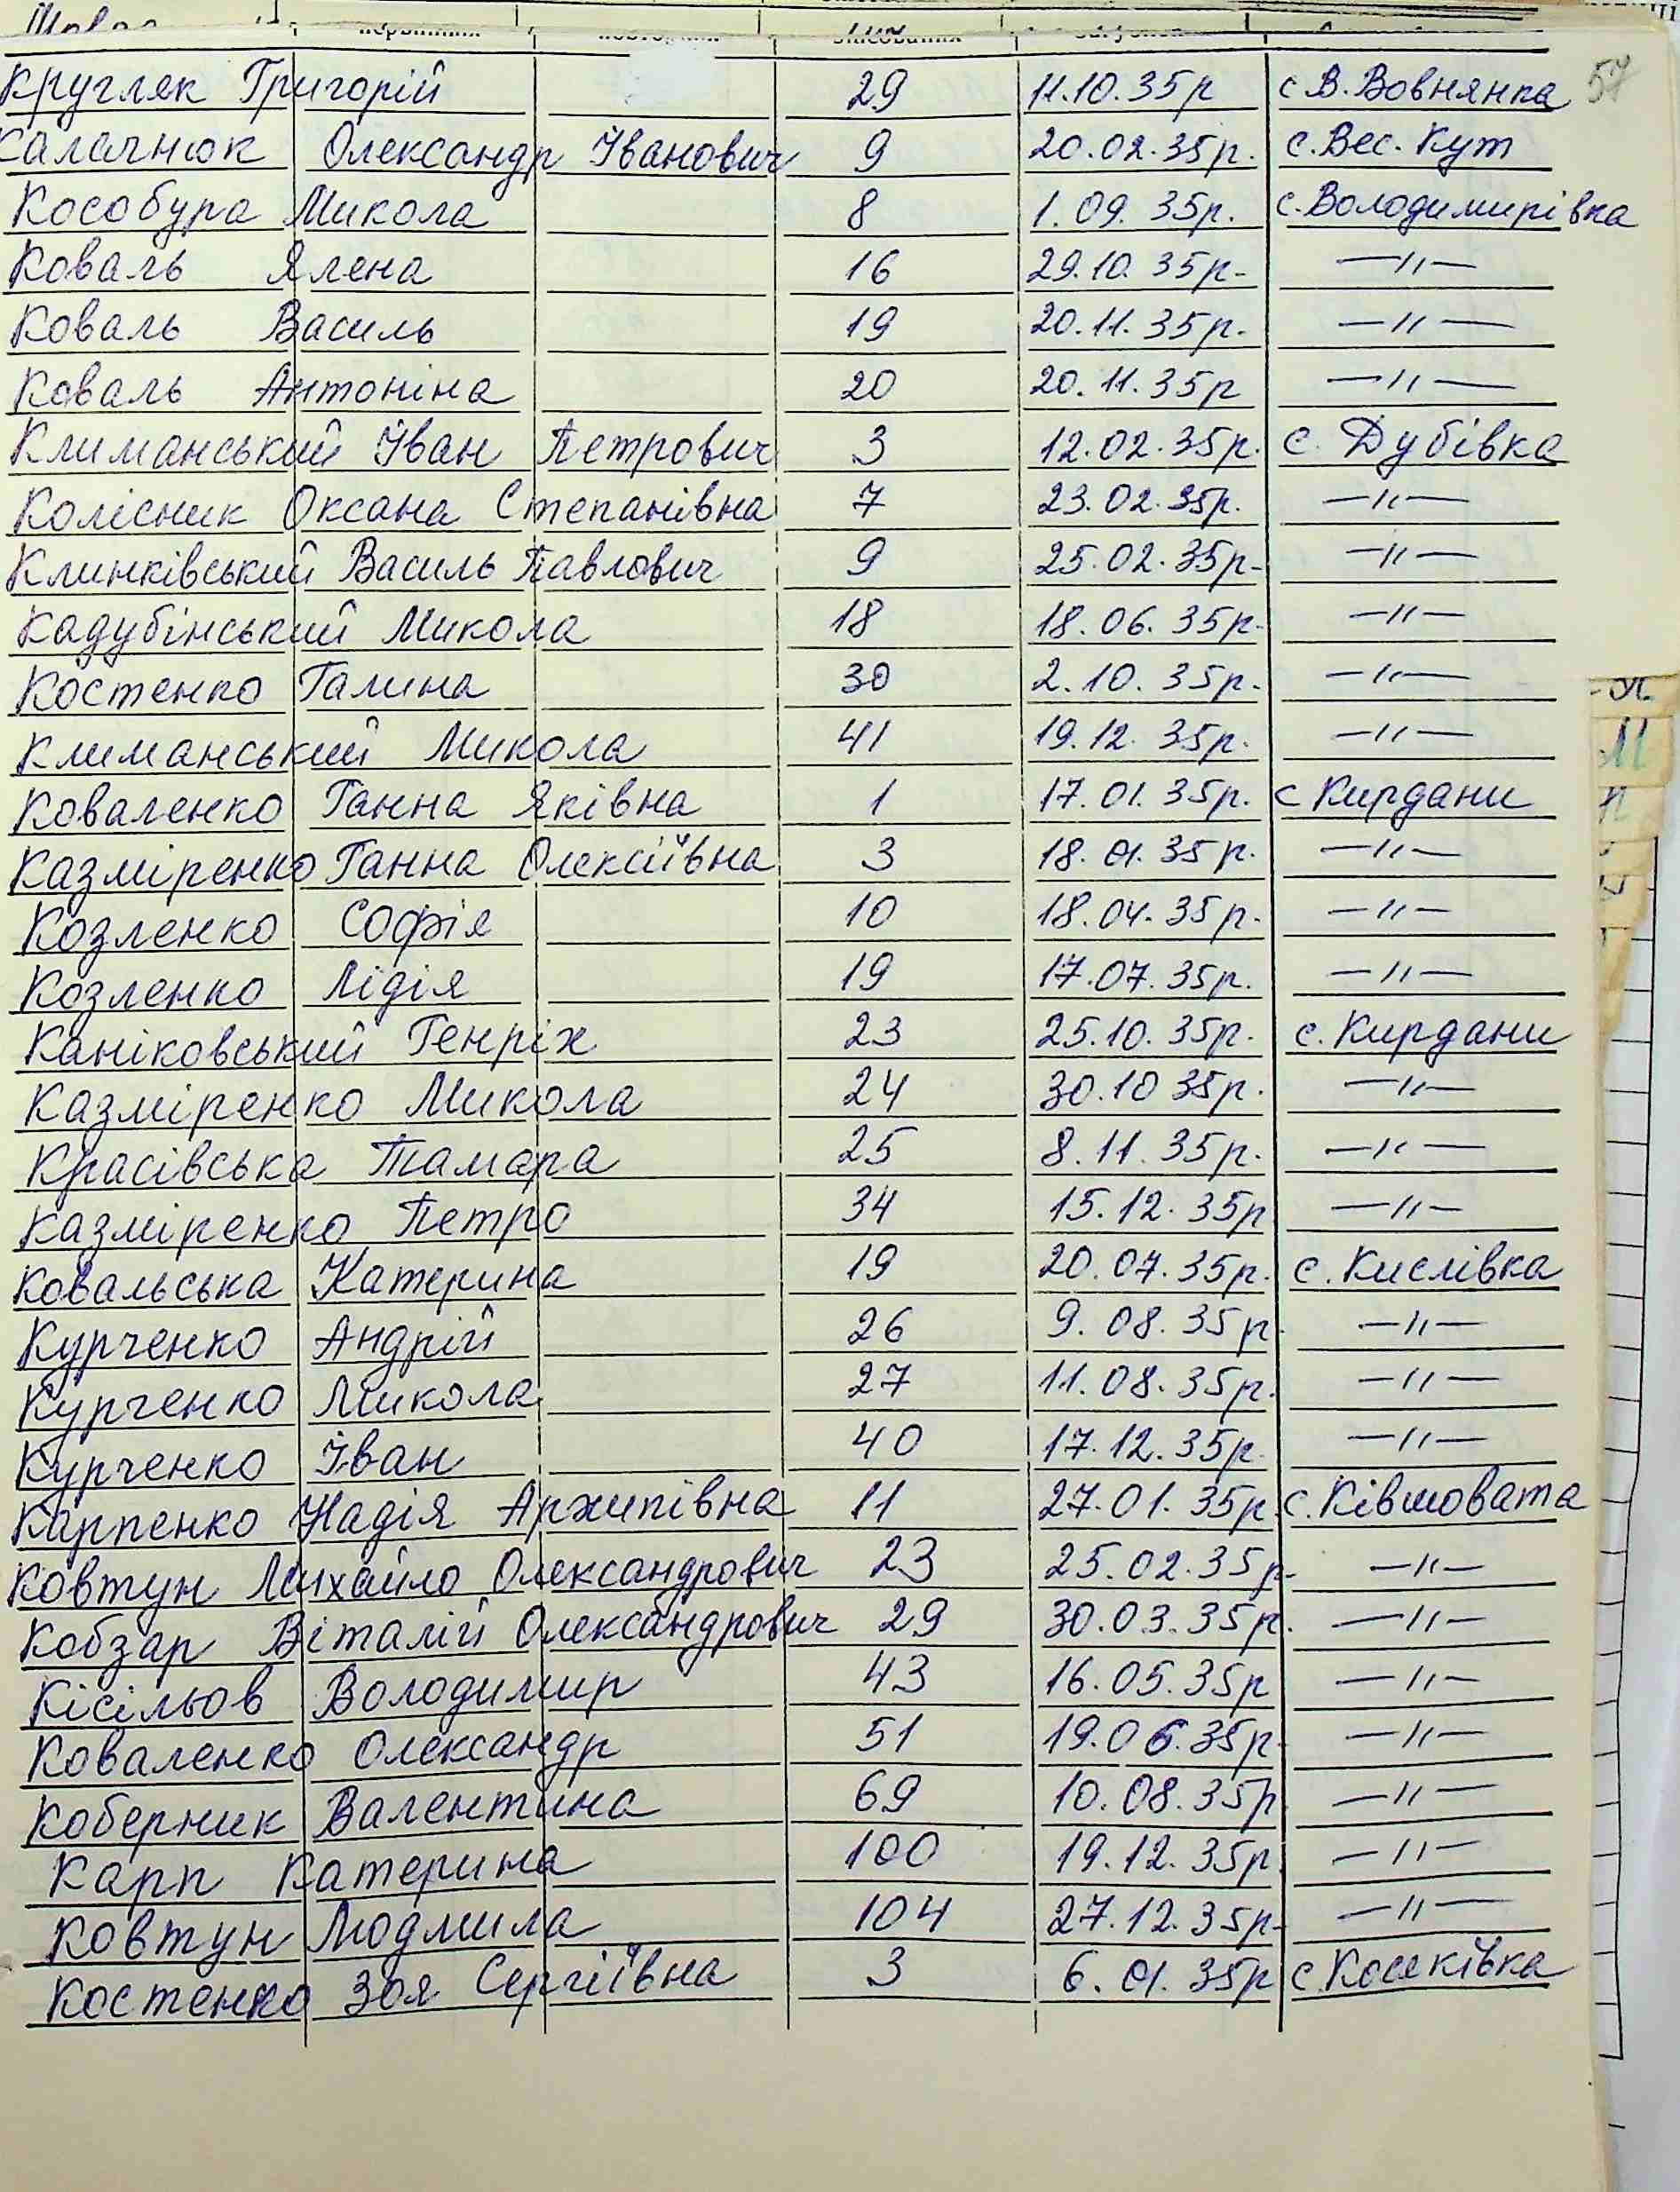 57
Кругляк Григорій 29 11.10.35р с В. Вовнянка
Калачнюк Олександр Іванович 9 20.02.35р. с. Вес. Кут
Кособура Микола 8 1.09.35р. с. Володимирівка
Коваль Ялена 16 29.10.35р. —〃—
Коваль Василь 19 20.11.35р. —〃—
Коваль Антоніна 20 20.11.35р —〃—
Климанський Іван Петрович 3 12.02.35р. с. Дубівка
Колісник Оксана Степанівна 7 23.02.35р. —〃—
Клинківський Василь Павлович 9 25.02.35р. —〃—
Кадубінський Микола 18 18.06.35р. —〃—
Костенко Галина 30 2.10.35р. —〃—
Климанський Микола 41 19.12.35р. —〃—
Коваленко Ганна Яківна 1 17.01.35р. с Кирдани
Казміренко Ганна Олексіївна 3 18.01.35р. —〃—
Козленко Софія 10 18.04.35р. —〃—
Козленко Лідія 19 17.07.35р. —〃—
Каніковський Генріх 23 25.10.35р. с. Кирдани
Казміренко Микола 24 30.10 35р. —〃—
Красівська Тамара 25 8.11.35р. —〃—
Казміренко Петро 34 15.12.35р —〃—
Ковальська Катерина 19 20.07.35р. с. Кислівка
Курченко Андрій 26 9.08.35р —〃—
Курченко Микола 27 11.08.35р. —〃—
Курченко Іван 40 17.12.35р. —〃—
Карпенко Надія Архипівна 11 27.01.35р с. Ківшовата
Ковтун Михайло Олександрович 23 25.02.35р. —〃—
Кобзар Віталій Олександрович 29 30.03.35р. —〃—
Кісільов Володимир 43 16.05.35р —〃—
Коваленко Олександр 51 19.06.35р —〃—
Коберник Валентина 69 10.08.35р —〃—
Карп Катерина 100 19.12.35р —〃—
Ковтун Людмила 104 27.12.35р. —〃—
Костенко Зоя Сергіївна 3 6.01.35р с. Косяківка